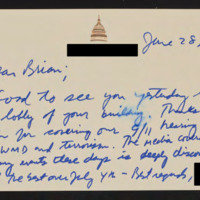 June 28,
ear Brian,
ood to see you yesterday
lobby of your building. Thanks
for covering our 9/11 hearing
WMD and terrorism. The media cover
many wants these days is deeply disco
- Best regards,